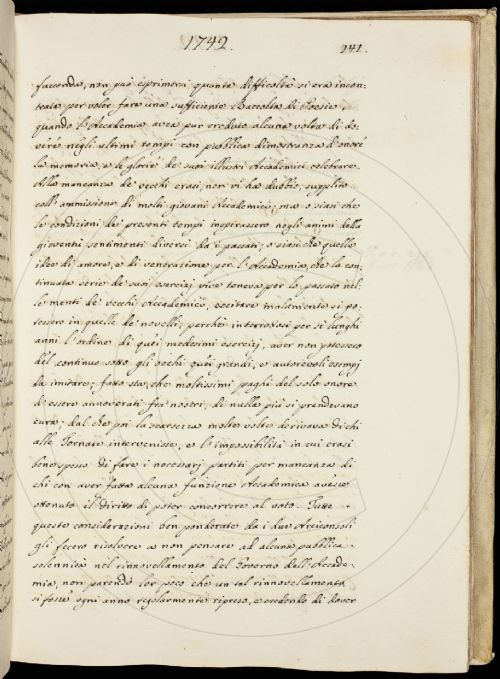 1742.
241.
faccenda, non può esprimersi quanta difficoltà si era incon-
trata per voler fare una sufficiente Raccolta di Poesie,
quando l'Accademia avea pur creduto alcuna volta di do-
vere negli ultimi tempi con pubblica dimostranza d'onore
la memoria, e le glorie de' suoi illustri Accademici celebrare.
Alla mancanza de' vecchi erasi, non vi ha dubbio, supplito
coll'ammissione di molti giovani Accademici; ma o sia che
le condizioni de' presenti tempi inspirassero negli animi della
gioventù sentimenti diversi da i passati; o sia che quelle
idee di amore, e di venerazione per l'Accademia, che la con-
tinuata serie de' suoi esercizj vive teneva per lo passato nel-
le menti de' vecchi Accademici, eccitare malamente si po-
tessero in quelle de' novelli, perchè interrottosi per sì lunghi
anni l'ordine di quei medesimi esercizj, aver non potessero
del continuo sotto gli occhi quei grandi, e autorevoli esempj
da imitare; fatto sta, che moltissimi paghi del solo onore
d'essere annoverati fra' nostri, di nulla più si prendevano
cura; dal che poi la scarsezza molte volte derivava di chi
alle Tornate intervenisse, e l'impossibilità in cui erasi
bene spesso di fare i necessarj partiti per mancanza di
chi con aver fatta alcuna funzione Accademica avesse
ottenuto il diritto di poter concorrere al voto. Tutte
queste considerazioni ben ponderate da i due Arciconsoli
gli fecero risolvere a non pensare ad alcuna pubblica
solennità nel rinnovellamento del Governo dell'Accade-
mia, non parendo lor poco che un tal rinnovellamento
si fosse ogni anno regolarmente ripreso, e credendo di dover